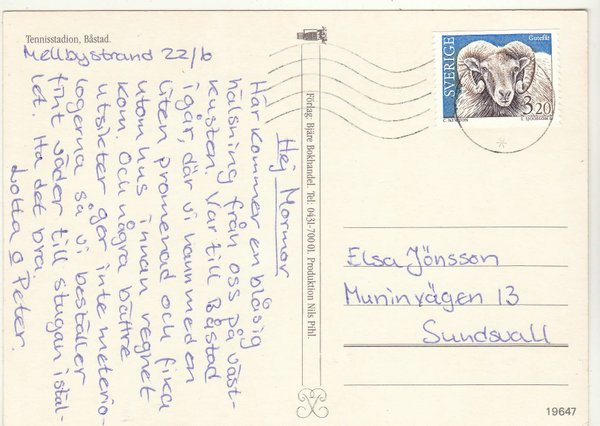 Tennisstadion, Båstad.
Mellbystrand 22/6
Hej Mormor
Här kommer en blåsig
hälsning från oss på väst-
kusten. Var till Båstad
igår, där vi hann med en
liten promenad och fika
utomhus innan regnet
kom. Och några bättre
utsikter ger inte meterio-
logerna så vi beställer
fint väder till stugan istäl-
let. Ha det bra.
Lotta o Peter.
Förlag: Bjäre Bokhandel. Tel: 0431-700 01, Produktion Nils Pihl.
SVERIGE
Gutefår
3,20
Elsa Jönsson
Muninvägen 13
Sundsvall
19647